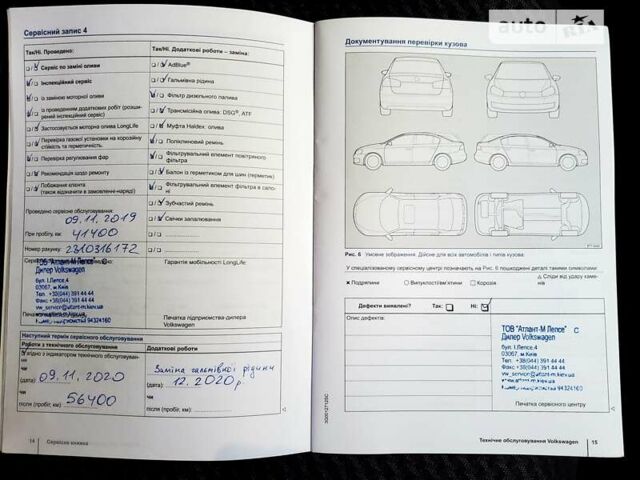 Сервісний запис 4
Так/Ні. Проведено:
Так/Ні. Додаткові роботи – заміна:
Сервіс по заміні оливи
AdBlue®
Інспекційний сервіс
Гальмівна рідина
із заміною моторної оливи
Фільтр дизельного палива
із проведенням додаткових робіт (розширений інспекційний сервіс)
Трансмісійна олива: DSG®, ATF
Застосовується моторна олива LongLife
Муфта Haldex: олива
Перевірка газової установки на корозійну стійкість та герметичність.
Поліклиновий ремінь
Перевірка регулювання фар
Фільтрувальний елемент повітряного фільтра
Рекомендація щодо ремонту
Балон із герметиком для шин (герметик)
Побажання клієнта
(також відзначити в замовленні-наряді)
Фільтрувальний елемент фільтра в салоні
Зубчастий ремінь
Свічки запалювання
Проведено сервісне обслуговування:
09.11.2019
При пробігу, км:
41400
Номер рахунку:
2310316172
ТОВ "Атлант-М Лепсе"
Дилер Volkswagen
бул. І.Лепсе,4
03067, м.Київ
Тел. +38(044) 391 44 44
Факс +38(044) 391 44 44
vw_service@atlant-m.kiev.ua
94324160
Гарантія мобільності LongLife
Печатка підприємства-дилера Volkswagen
Наступний термін сервісного обслуговування
Роботи з технічного обслуговування
Додаткові роботи
згідно з індикатором технічного обслуговування
чи
(дата)
09.11.2020
чи
після (пробіг, км)
56400
Заміна гальмівної рідини
(дата)
12.2020р
чи
після (пробіг, км)
14
Сервісна книжка
Документування перевірки кузова
Рис. 6 Умовне зображення. Дійсне для всіх автомобілів і типів кузова.
У спеціалізованому сервісному центрі позначають на Рис. 6 пошкоджені деталі такими символами:
× Подряпини
Випуклості/вм'ятини
Корозія
△ Сліди від удару каменів
Дефекти виявлені?
Так:
Ні:
Опис дефектів:
ТОВ "Атлант-М Лепсе" С
Дилер Volkswagen
бул. І.Лепсе,4
03067, м.Київ
Тел. +38(044) 391 44 44
Факс +38(044) 391 44 44
vw_service@atlant-m.kiev.ua
94324160
Печатка сервісного центру
3Q0012712SC
Технічне обслуговування Volkswagen
15
auto
RIA